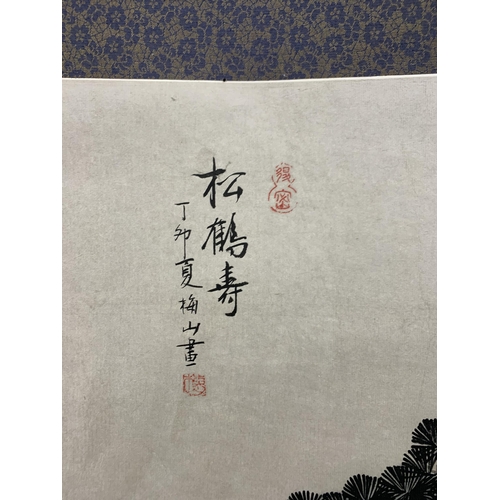 松鶴寿
丁卯夏梅山畫